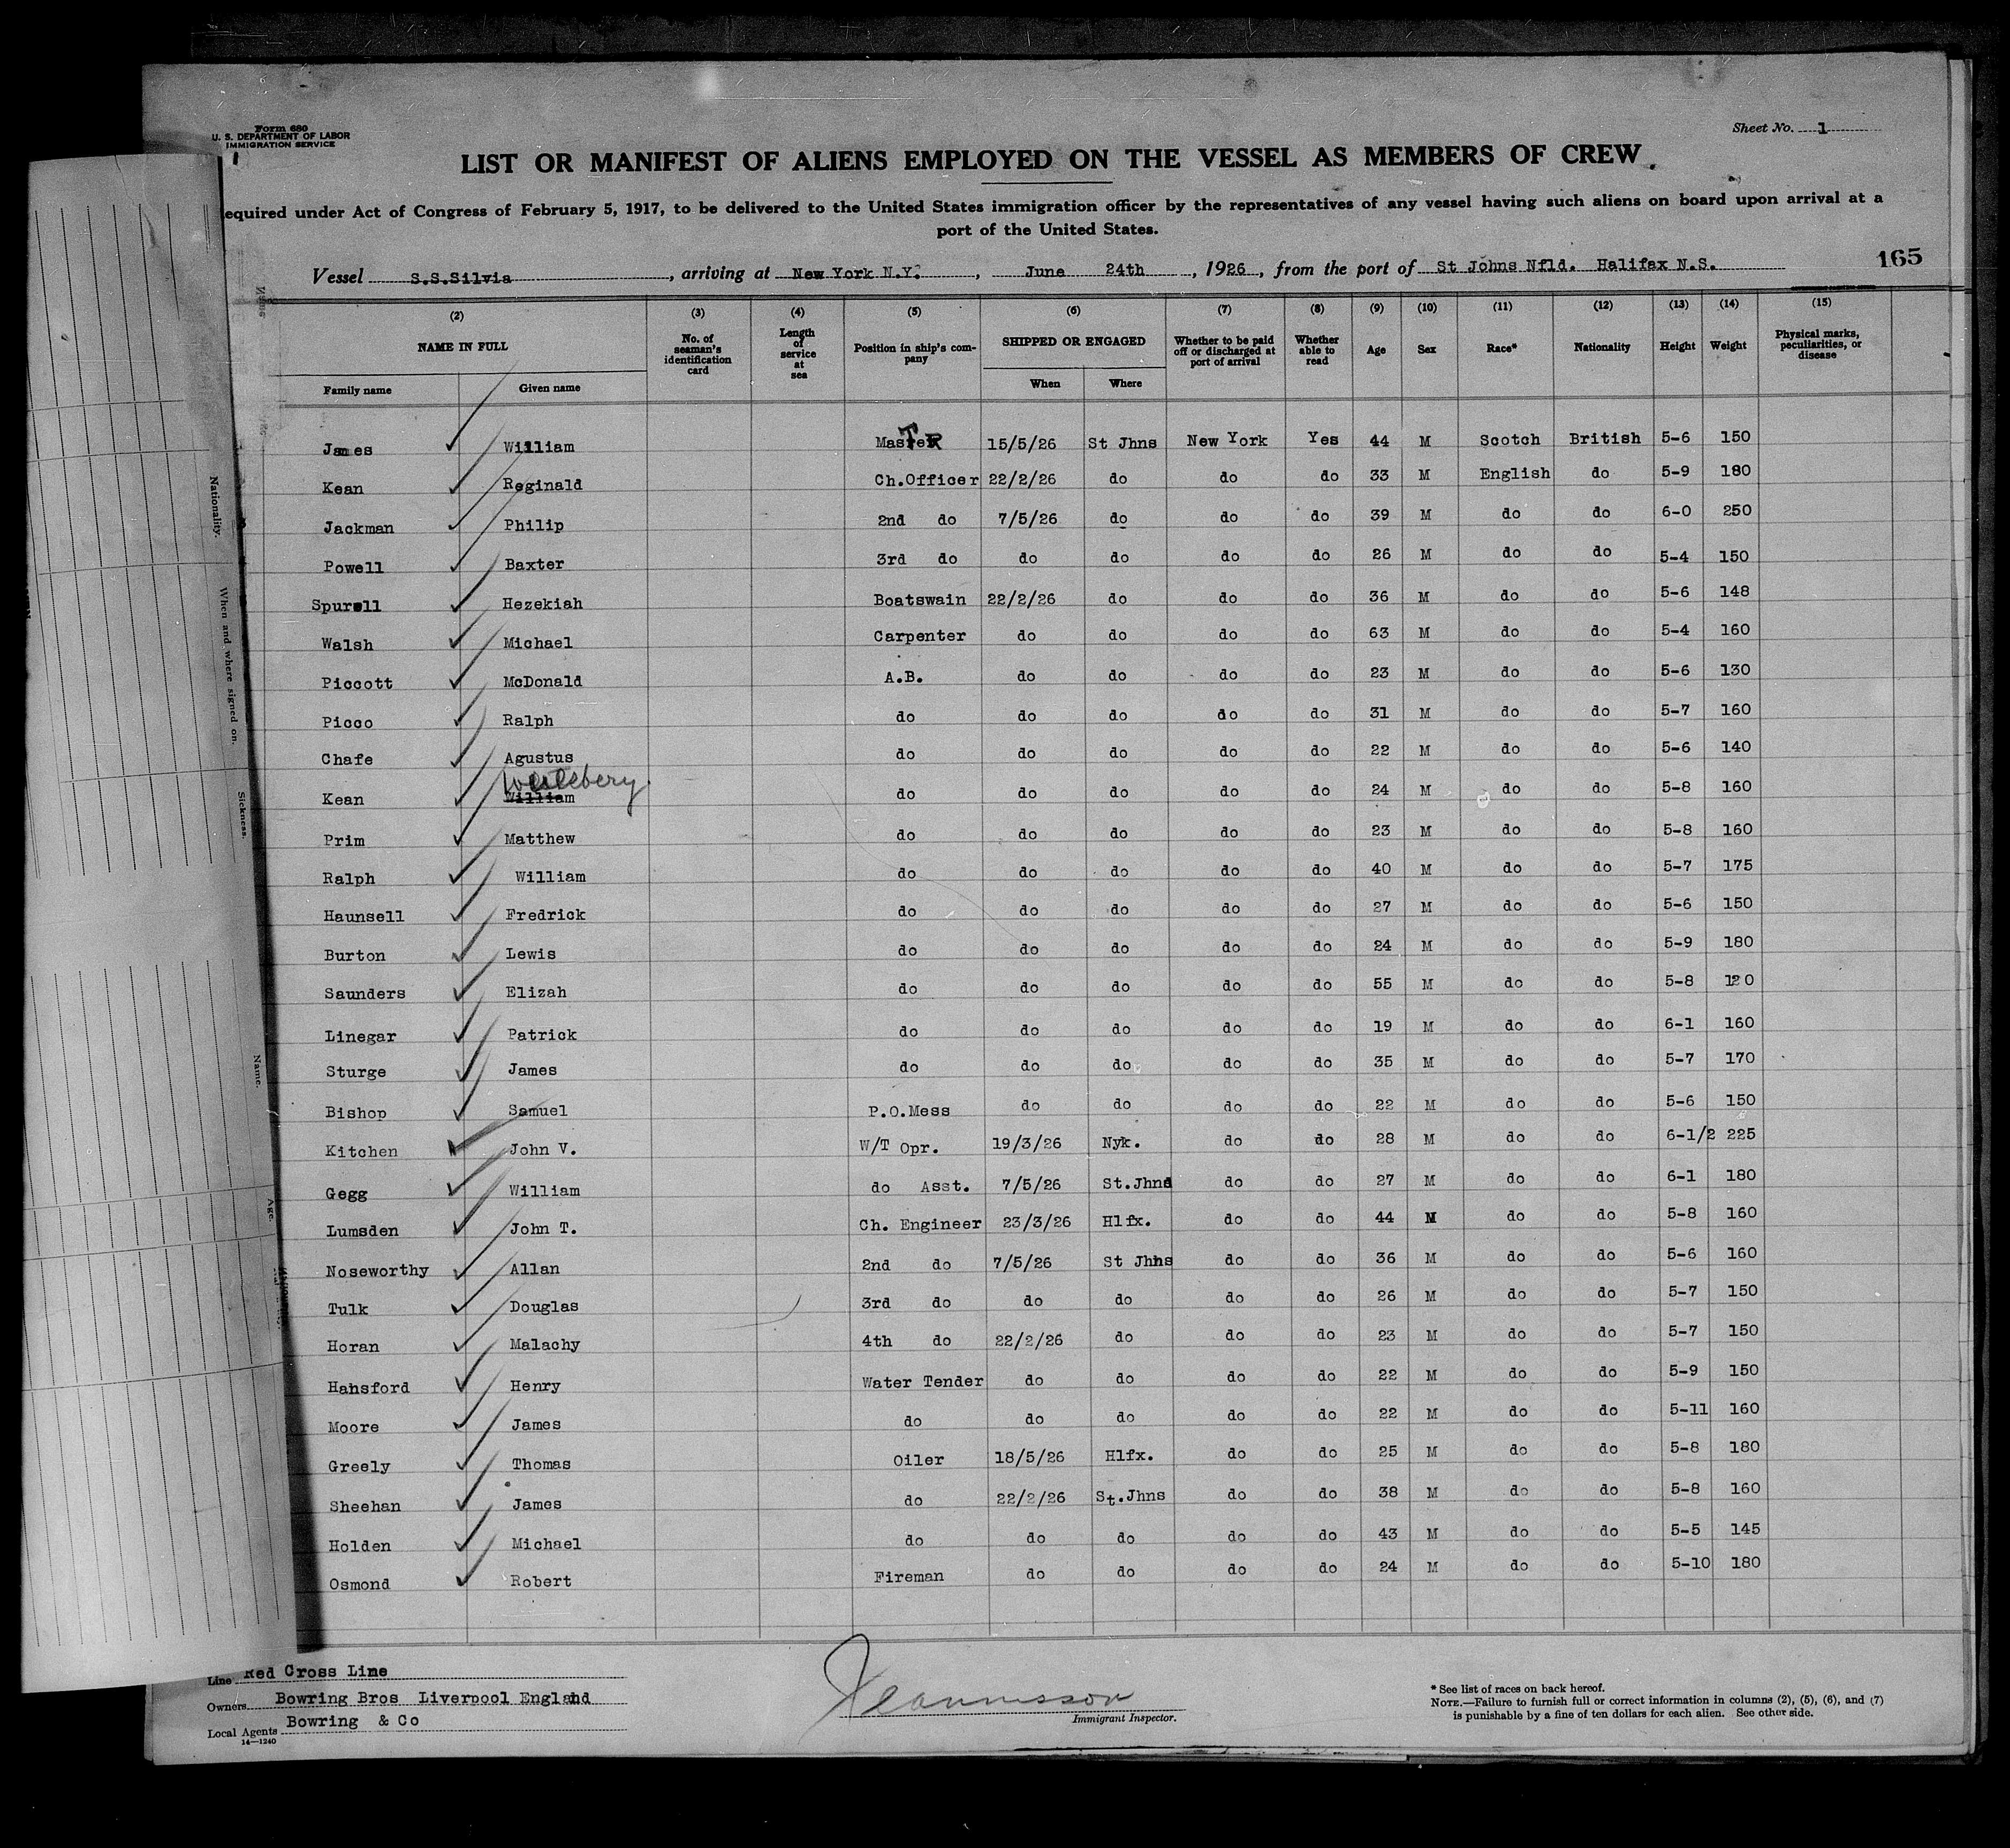 Form 680
U. S. DEPARTMENT OF LABOR
IMMIGRATION SERVICE
Sheet No. 1
LIST OR MANIFEST OF ALIENS EMPLOYED ON THE VESSEL AS MEMBERS OF CREW
equired under Act of Congress of February 5, 1917, to be delivered to the United States immigration officer by the representatives of any vessel having such aliens on board upon arrival at a
port of the United States.
Vessel S.S.Silvia, arriving at New York N.Y., June 24th, 1926, from the port of St Johns Nfld. Halifax N.S.
165
(2) (3) (4) (5) (6) (7) (8) (9) (10) (11) (12) (13) (14) (15)
NAME IN FULL No. of seaman's identification card Length of service at sea Position in ship's com-pany SHIPPED OR ENGAGED Whether to be paid off or discharged at port of arrival Whether able to read Age Sex Race* Nationality Height Weight Physical marks, peculiarities, or disease
Family name Given name When Where
James William Master 15/5/26 St Jhns New York Yes 44 M Scotch British 5-6 150
Kean Reginald Ch.Officer 22/2/26 do do do 33 M English do 5-9 180
Jackman Philip 2nd do 7/5/26 do do do 39 M do do 6-0 250
Powell Baxter 3rd do do do do do 26 M do do 5-4 150
Spurell Hezekiah Boatswain 22/2/26 do do do 36 M do do 5-6 148
Walsh Michael Carpenter do do do do 63 M do do 5-4 160
Piccott McDonald A.B. do do do do 23 M do do 5-6 130
Picco Ralph do do do do do 31 M do do 5-7 160
Chafe Agustus do do do do do 22 M do do 5-6 140
Kean William do do do do do 24 M do do 5-8 160
Prim Matthew do do do do do 23 M do do 5-8 160
Ralph William do do do do do 40 M do do 5-7 175
Haunsell Fredrick do do do do do 27 M do do 5-6 150
Burton Lewis do do do do do 24 M do do 5-9 180
Saunders Elizah do do do do do 55 M do do 5-8 120
Linegar Patrick do do do do do 19 M do do 6-1 160
Sturge James do do do do do 35 M do do 5-7 170
Bishop Samuel P.O.Mess do do do do 22 M do do 5-6 150
Kitchen John V. W/T Opr. 19/3/26 Nyk. do do 28 M do do 6-1/2 225
Gegg William do Asst. 7/5/26 St.Jhns do do 27 M do do 6-1 180
Lumsden John T. Ch. Engineer 23/3/26 Hlfx. do do 44 M do do 5-8 160
Noseworthy Allan 2nd do 7/5/26 St Jhns do do 36 M do do 5-6 160
Tulk Douglas 3rd do do do do do 26 M do do 5-7 150
Horan Malachy 4th do 22/2/26 do do do 23 M do do 5-7 150
Hansford Henry Water Tender do do do do 22 M do do 5-9 150
Moore James do do do do do 22 M do do 5-11 160
Greely Thomas Oiler 18/5/26 Hlfx. do do 25 M do do 5-8 180
Sheehan James do 22/2/26 St.Jhns do do 38 M do do 5-8 160
Holden Michael do do do do do 43 M do do 5-5 145
Osmond Robert Fireman do do do do 24 M do do 5-10 180
Nationality.
When and where signed on.
Sickness.
Name.
Age.
Line Red Cross Line
Owners Bowring Bros Liverpool England
Local Agents Bowring & Co
14—1240
Immigrant Inspector.
* See list of races on back hereof.
NOTE.—Failure to furnish full or correct information in columns (2), (5), (6), and (7)
is punishable by a fine of ten dollars for each alien. See other side.